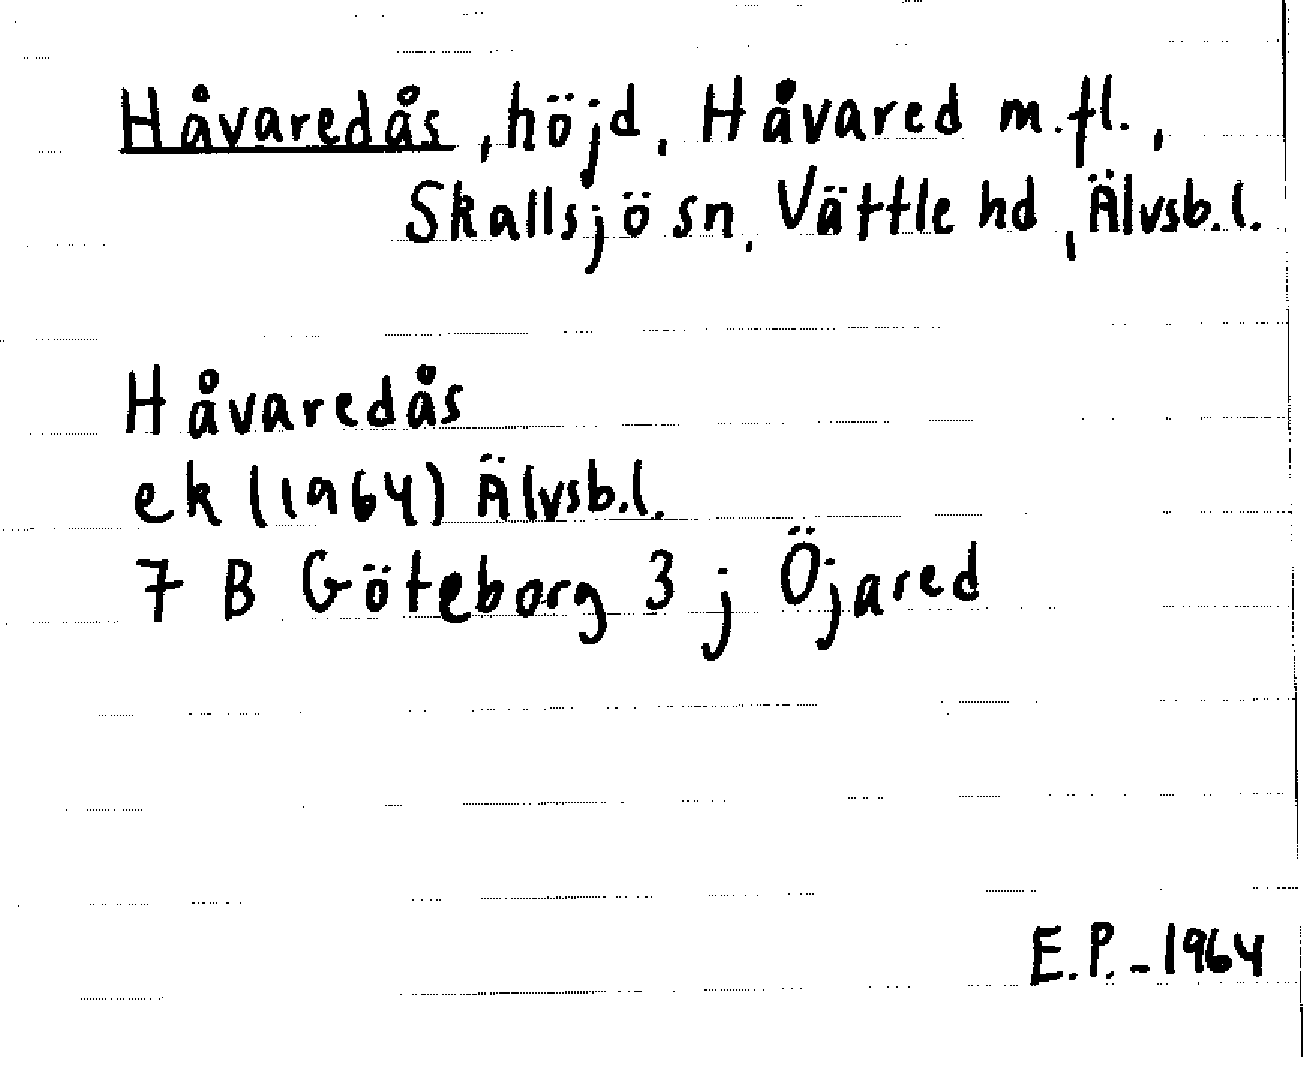 Håvaredås, höjd, Håvared m.fl.,
Skallsjö sn, Vättle hd, Älvsb.l.
Håvaredås
ek (1964) Älvsb.l.
7 B Göteborg 3 j Öjared
E.P. - 1964